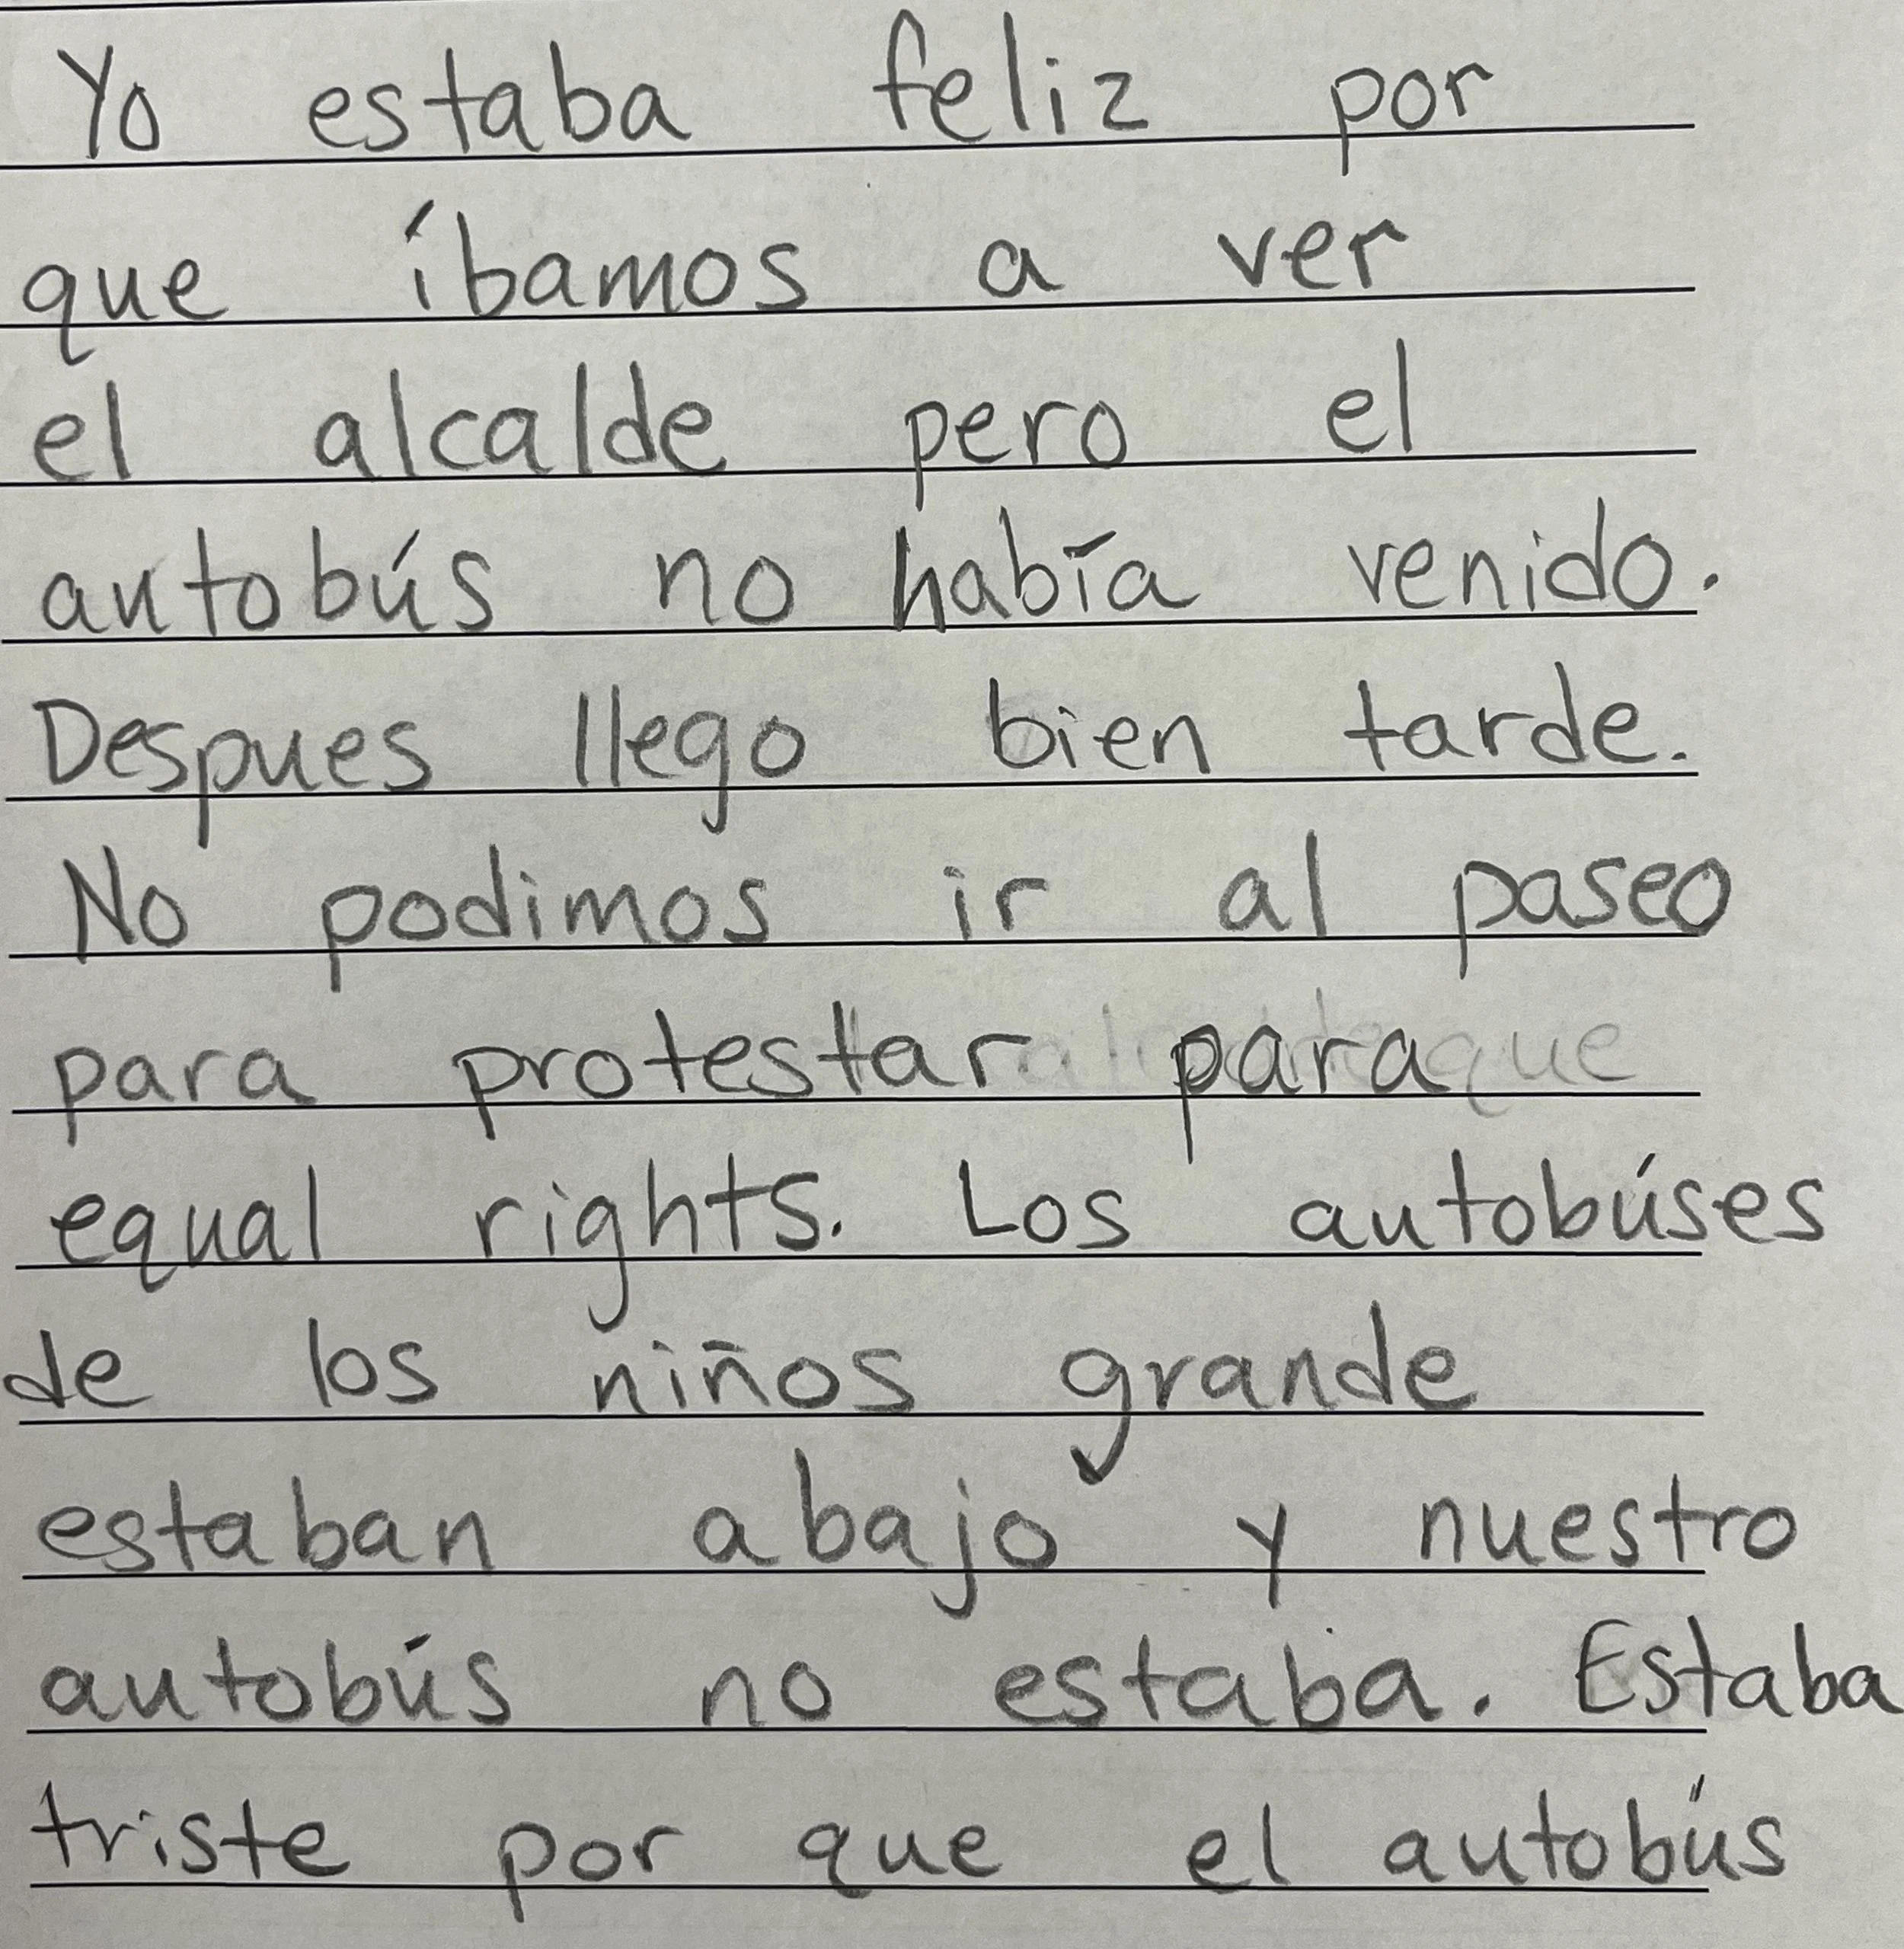 Yo estaba feliz por
que íbamos a ver
el alcalde pero el
autobús no había venido.
Despues llego bien tarde.
No podimos ir al paseo
para protestar para que
equal rights. Los autobúses
de los niños grande
estaban abajo y nuestro
autobús no estaba. Estaba
triste por que el autobús